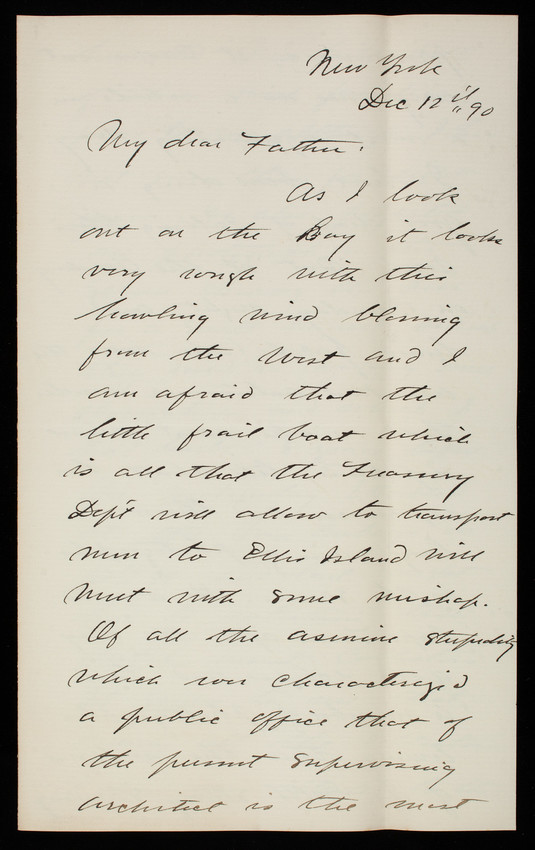 New York
Dec 12th 90
My dear Father:
As I look
out on the Bay it looks
very rough with this
howling wind blowing
from the West and I
am afraid that the
little frail boat which
is all that the Treasury
Dep't will allow to transport
men to Ellis Island will
meet with some mishap.
Of all the asinine stupidity
which ever characterized
a public office that of
the present Supervising
Architect is the most